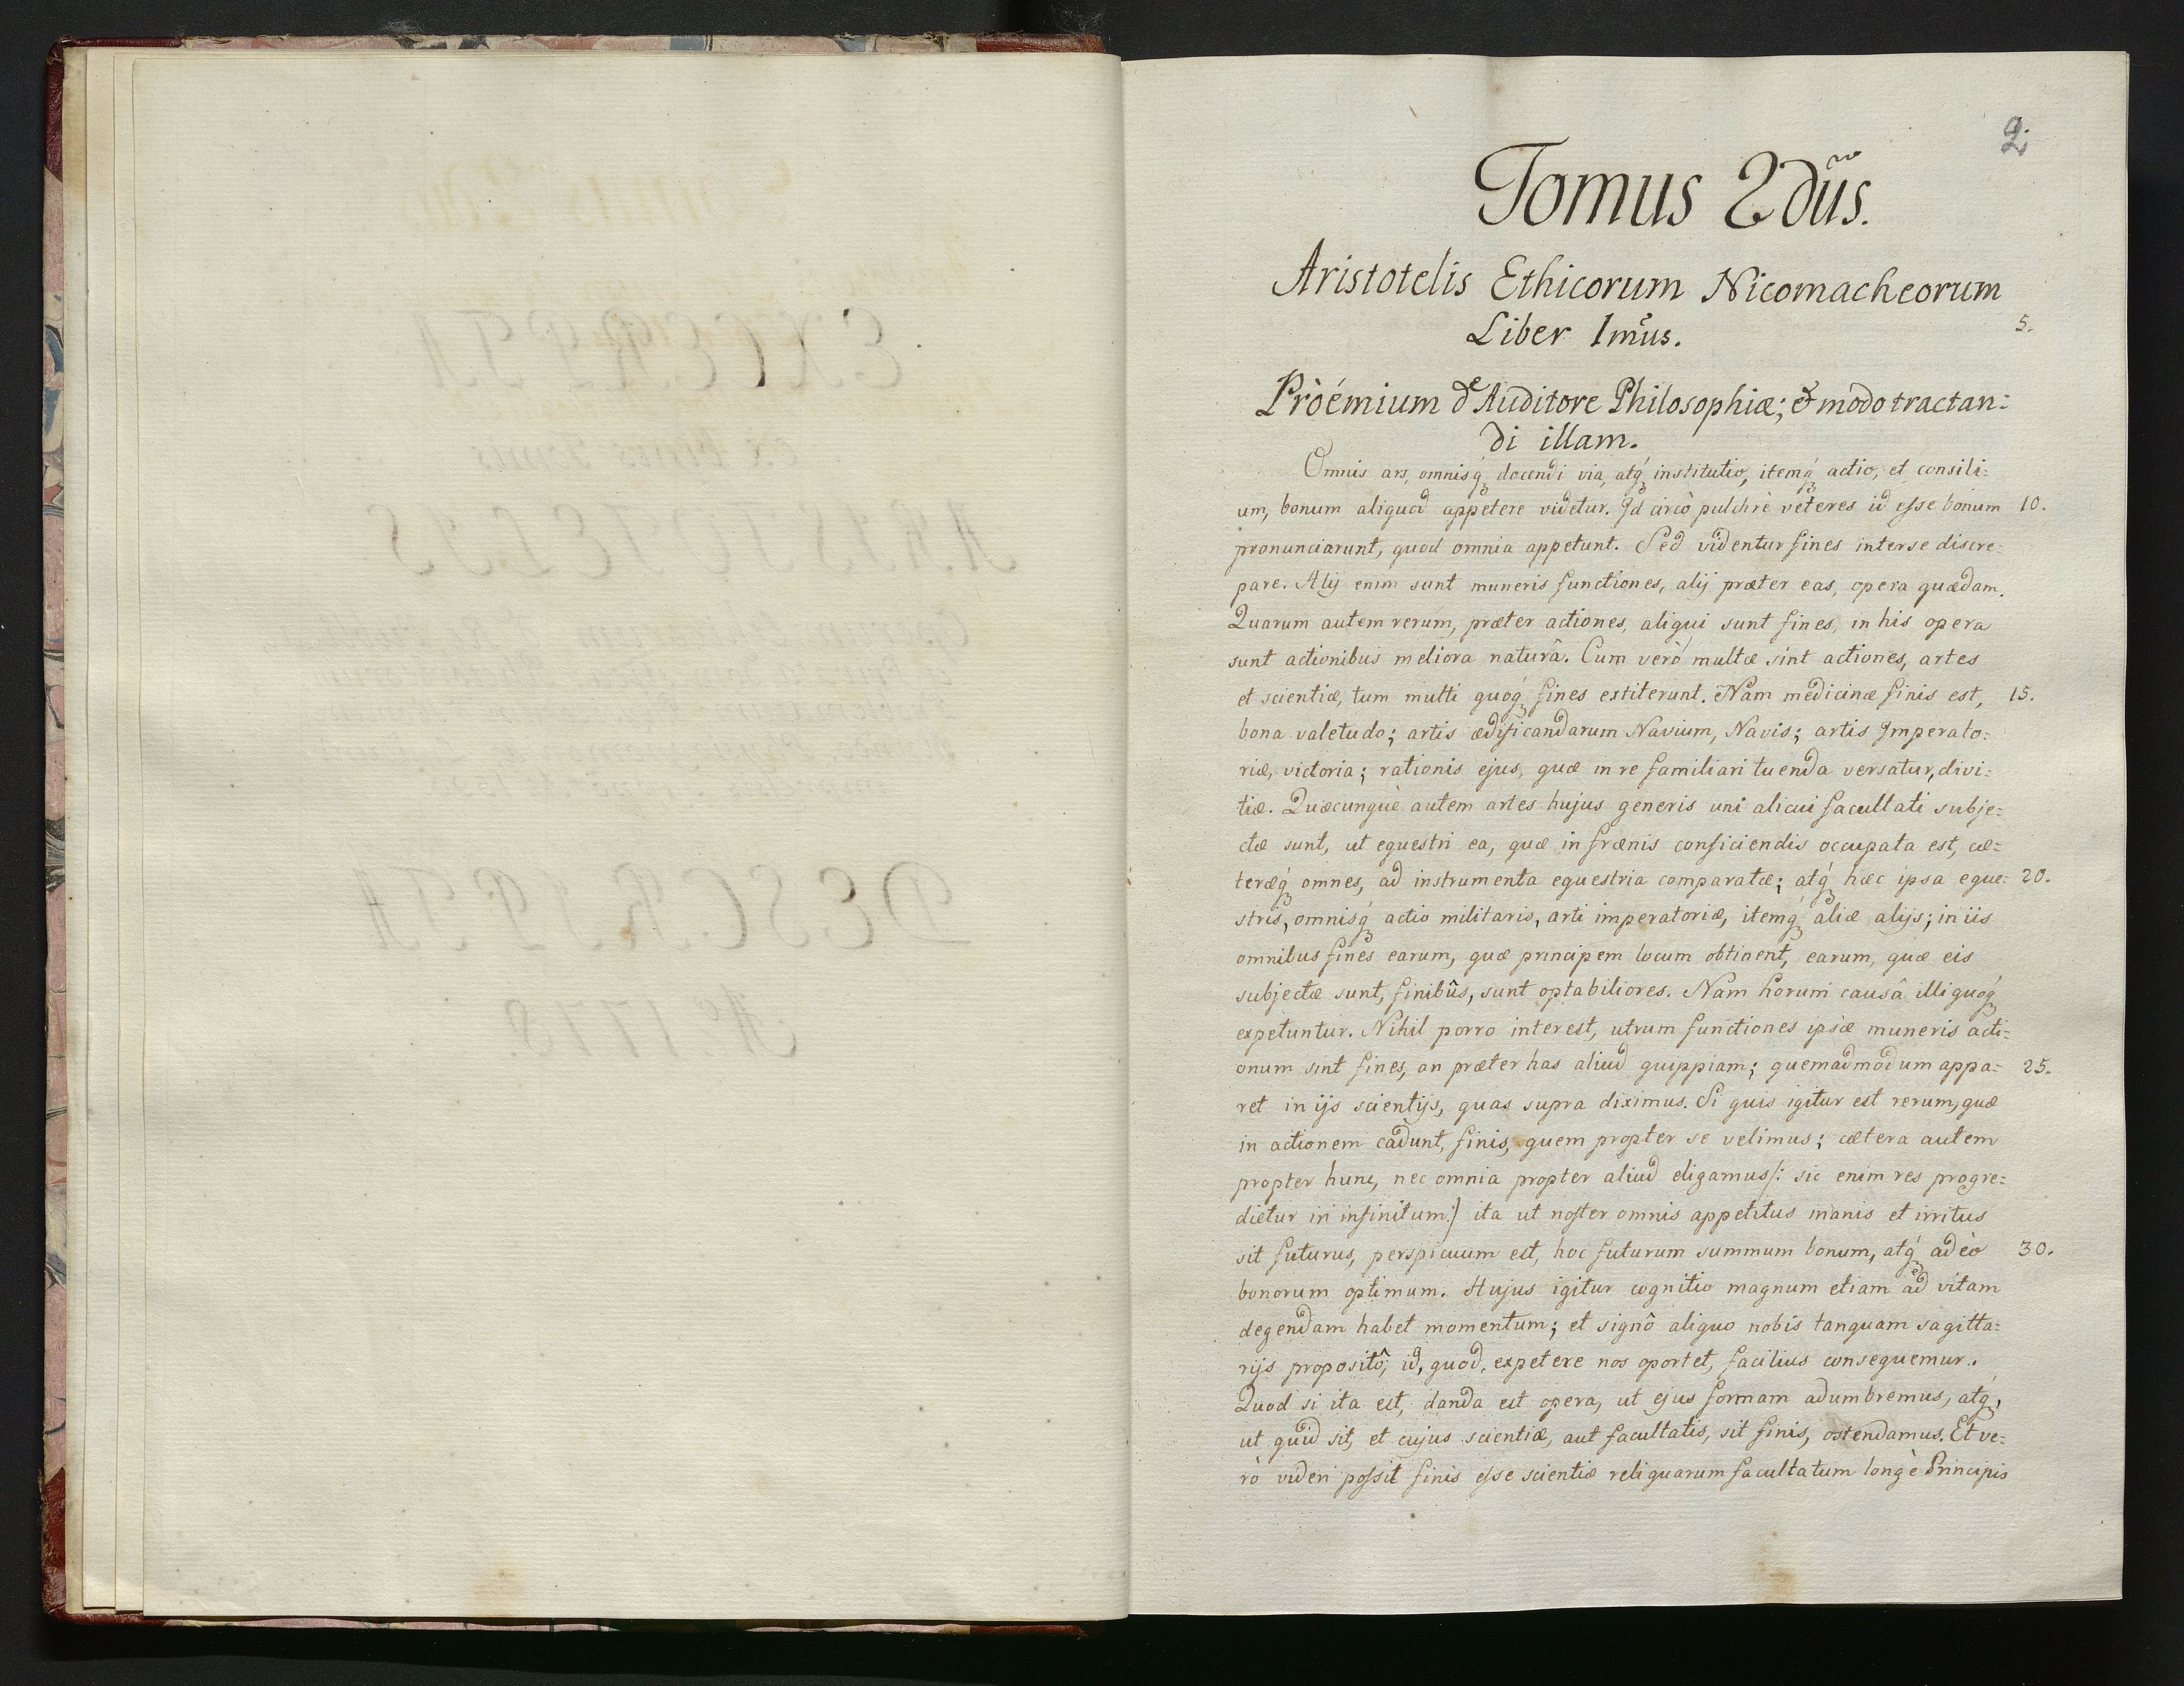 2.
Tomus 2dũs.
Aristotelis Ethicorum Nicomacheorum
Liber 1mũs.
5.
Pròémium de Auditore Philosophiæ; & modo tractan=
di illam.
Omnis ars, omnisq́ꝫ docendi via, atq́ꝫ institutio, itemq́ꝫ actio, et consili=
um, bonum aliquod appetere videtur. Id circò pulchrè veteres id esse bonum 10.
pronunciarunt, quod omnia appetunt. Sed videntur fines inter se discre=
pare. Alij enim sunt muneris functiones, alij præter eas, opera quædam.
Quarum autem rerum, præter actiones, aliqui sunt fines, in his opera
sunt actionibus meliora naturâ. Cum verò multæ sint actiones, artes
et scientiæ, tum multi quoq́ꝫ fines extiterunt. Nam medicinæ finis est, 15.
bona valetudo; artis ædificandarum Navium, Navis; artis Imperato=
riæ, victoria; rationis ejus, quæ in re familiari tuenda versatur, divi=
tiæ. Quæcunquè autem artes hujus generis uni alicui facultati subje=
ctæ sunt, ut equestri ea, quæ in frænis conficiendis occupata est, cæ=
teræq́ꝫ omnes, ad instrumenta equestria comparatæ; atq́ꝫ hæc ipsa eque= 20.
stris, omnisq́ꝫ actio militaris, arti imperatoriæ, itemq́ꝫ aliæ alijs; in iis
omnibus fines earum, quæ principem locum obtinent, earum, quæ eis
subjectæ sunt, finibûs, sunt optabiliores. Nam horum causâ illi quoq́ꝫ
expetuntur. Nihil porro interest, utrum functiones ipsæ muneris acti=
onum sint fines, an præter has aliud quippiam; quemadmodum appa= 25.
ret in ijs scientijs, quas supra diximus. Si quis igitur est rerum, quæ
in actionem cadunt, finis, quem propter se velimus; cætera autem
propter hunc, nec omnia propter aliud eligamus /: sic enim res progre=
dietur in infinitum :/ ita ut noster omnis appetitus inanis et irritus
sit futurus, perspicuum est, hoc futurum summum bonum, atq́ꝫ adeò 30.
bonorum optimum. Hujus igitur cognitio magnum etiam ad vitam
degendam habet momentum; et signô aliquo nobis tanquam sagitta=
rijs propositô, id, quod, expetere nos oportet, facilius consequemur.
Quod si ita est, danda est opera, ut ejus formam adumbremus, atq́ꝫ,
ut quid sit, et cujus scientiæ, aut facultatis, sit finis, ostendamus. Et ve=
rò videri possit finis esse scientiæ reliquarum facultatum longè Principis